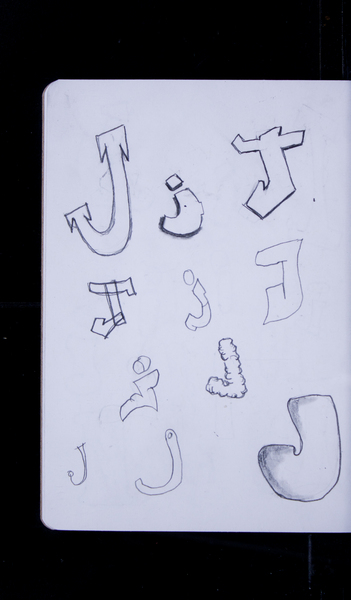 J j J
J j J
j J
J J J